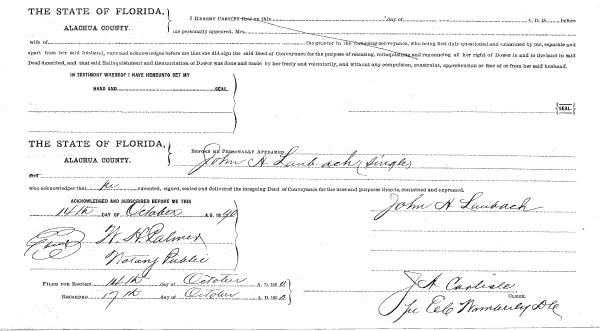 THE STATE OF FLORIDA,
ALACHUA COUNTY.
I HEREBY CERTIFY that on this day of A. D. 18 before
me personally appeared, Mrs.
wife of the grantor in the foregoing conveyance, who being first duly questioned and examined by me, separate and
apart from her said husband, vers and acknowledges before me that she did sign the said Deed of Conveyance for the purpose of releasing, relinquishing and renouncing all her right of Dower in and to the land in said
Deed described, and that said Relinquishment and Renunciation of Dower was done and made by her freely and voluntarily, and without any compulsion, constraint, apprehension or fear of or from her said husband.
IN TESTIMONY WHEREOF I HAVE HEREUNTO SET MY
HAND AND SEAL.
SEAL.
THE STATE OF FLORIDA,
ALACHUA COUNTY.
BEFORE ME PERSONALLY APPEARED
John H Laubach (single)
and
who acknowledges that he executed, signed, sealed and delivered the foregoing Deed of Conveyance for the uses and purposes therein contained and expressed.
ACKNOWLEDGED AND SUBSCRIBED BEFORE ME THIS
14th DAY OF October A. D. 1890
W. H. Palmer
Notary Public
John H Laubach
FILED FOR RECORD 14th day of October A. D. 1890
RECORDED 17th day of October A. D. 1890
J A Carlisle
CLERK.
Per E C Wamberly D C